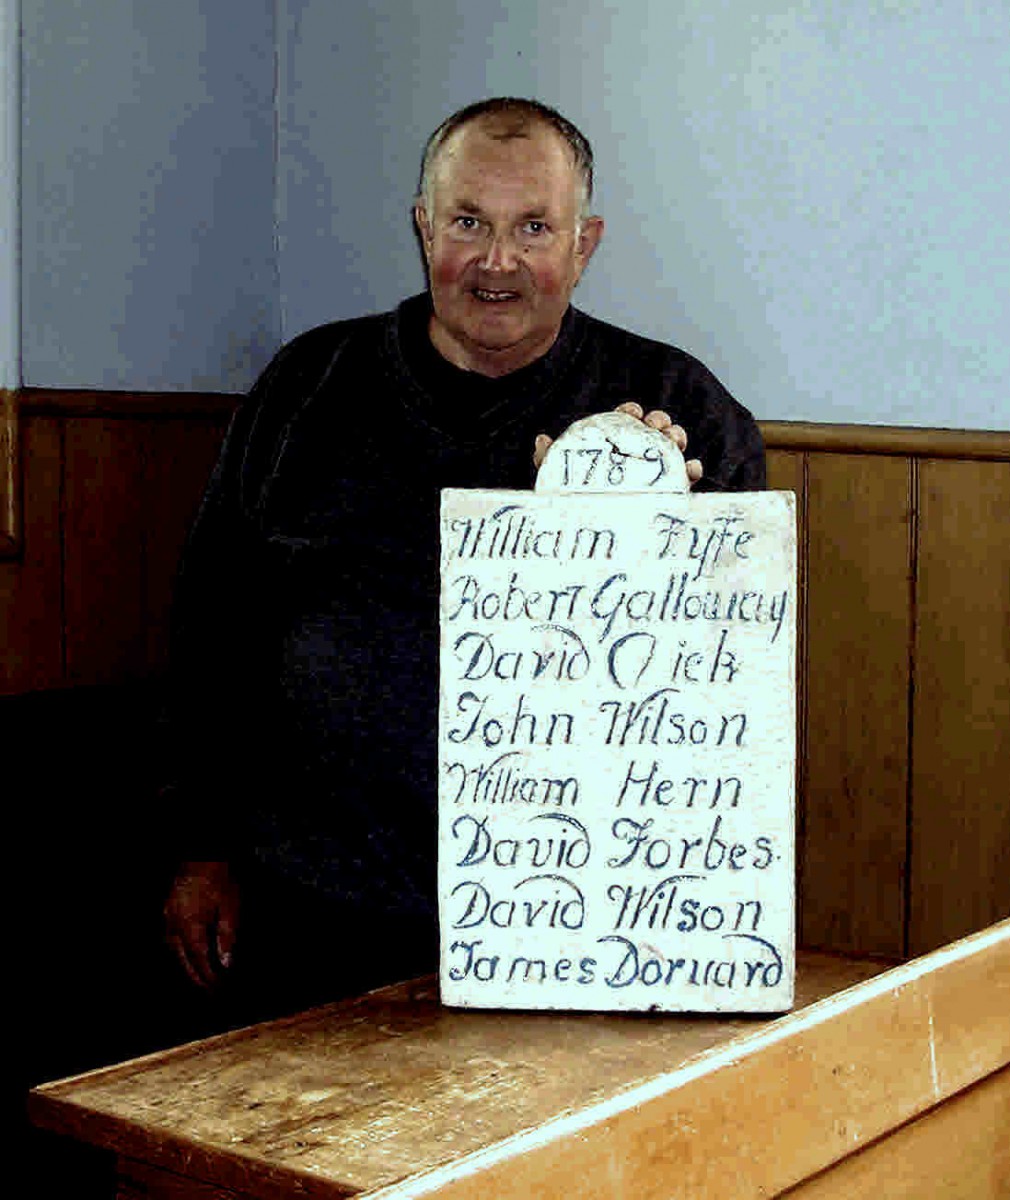 1789
William Fyfe
Robert Galloway
David
John Wilson
William Hern
David Forbes
David Wilson
James Dorward